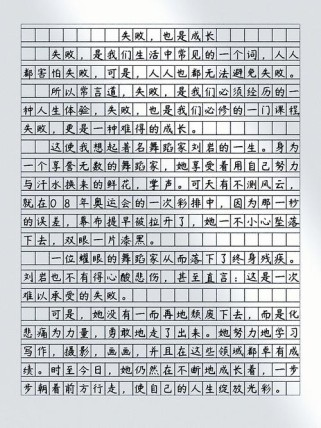 失败，也是成长
失败，是我们生活中常见的一个词，人人
都害怕失败，可是，人人也都无法避免失败。
所以常言道，失败，是我们必须经历的一
种人生体验，失败，也是我们必修的一门课程
失败，更是一种难得的成长。
这使我想起著名舞蹈家刘岩的一生。身为
一个享誉无数的舞蹈家，她享受着用自己努力
与汗水换来的鲜花，掌声。可天有不测风云，
就在08年奥运会的一次彩排中，因为那一秒
的误差，幕布提早被拉开了，她一不小心坠落
下去，双眼一片漆黑。
一位耀眼的舞蹈家从而落下了终身残疾。
刘岩也不有得心酸悲伤，甚至直言：这是一次
难以承受的失败。
可是，她没有一而再地颓废下去，而是化
悲痛为力量，勇敢地走了出来。她努力地学习
写作，摄影，画画，并且在这些领域都卓有成
绩。时至今日，她仍然在不断地成长着，一步
步朝着前方行走，使自己的人生绽放光彩。